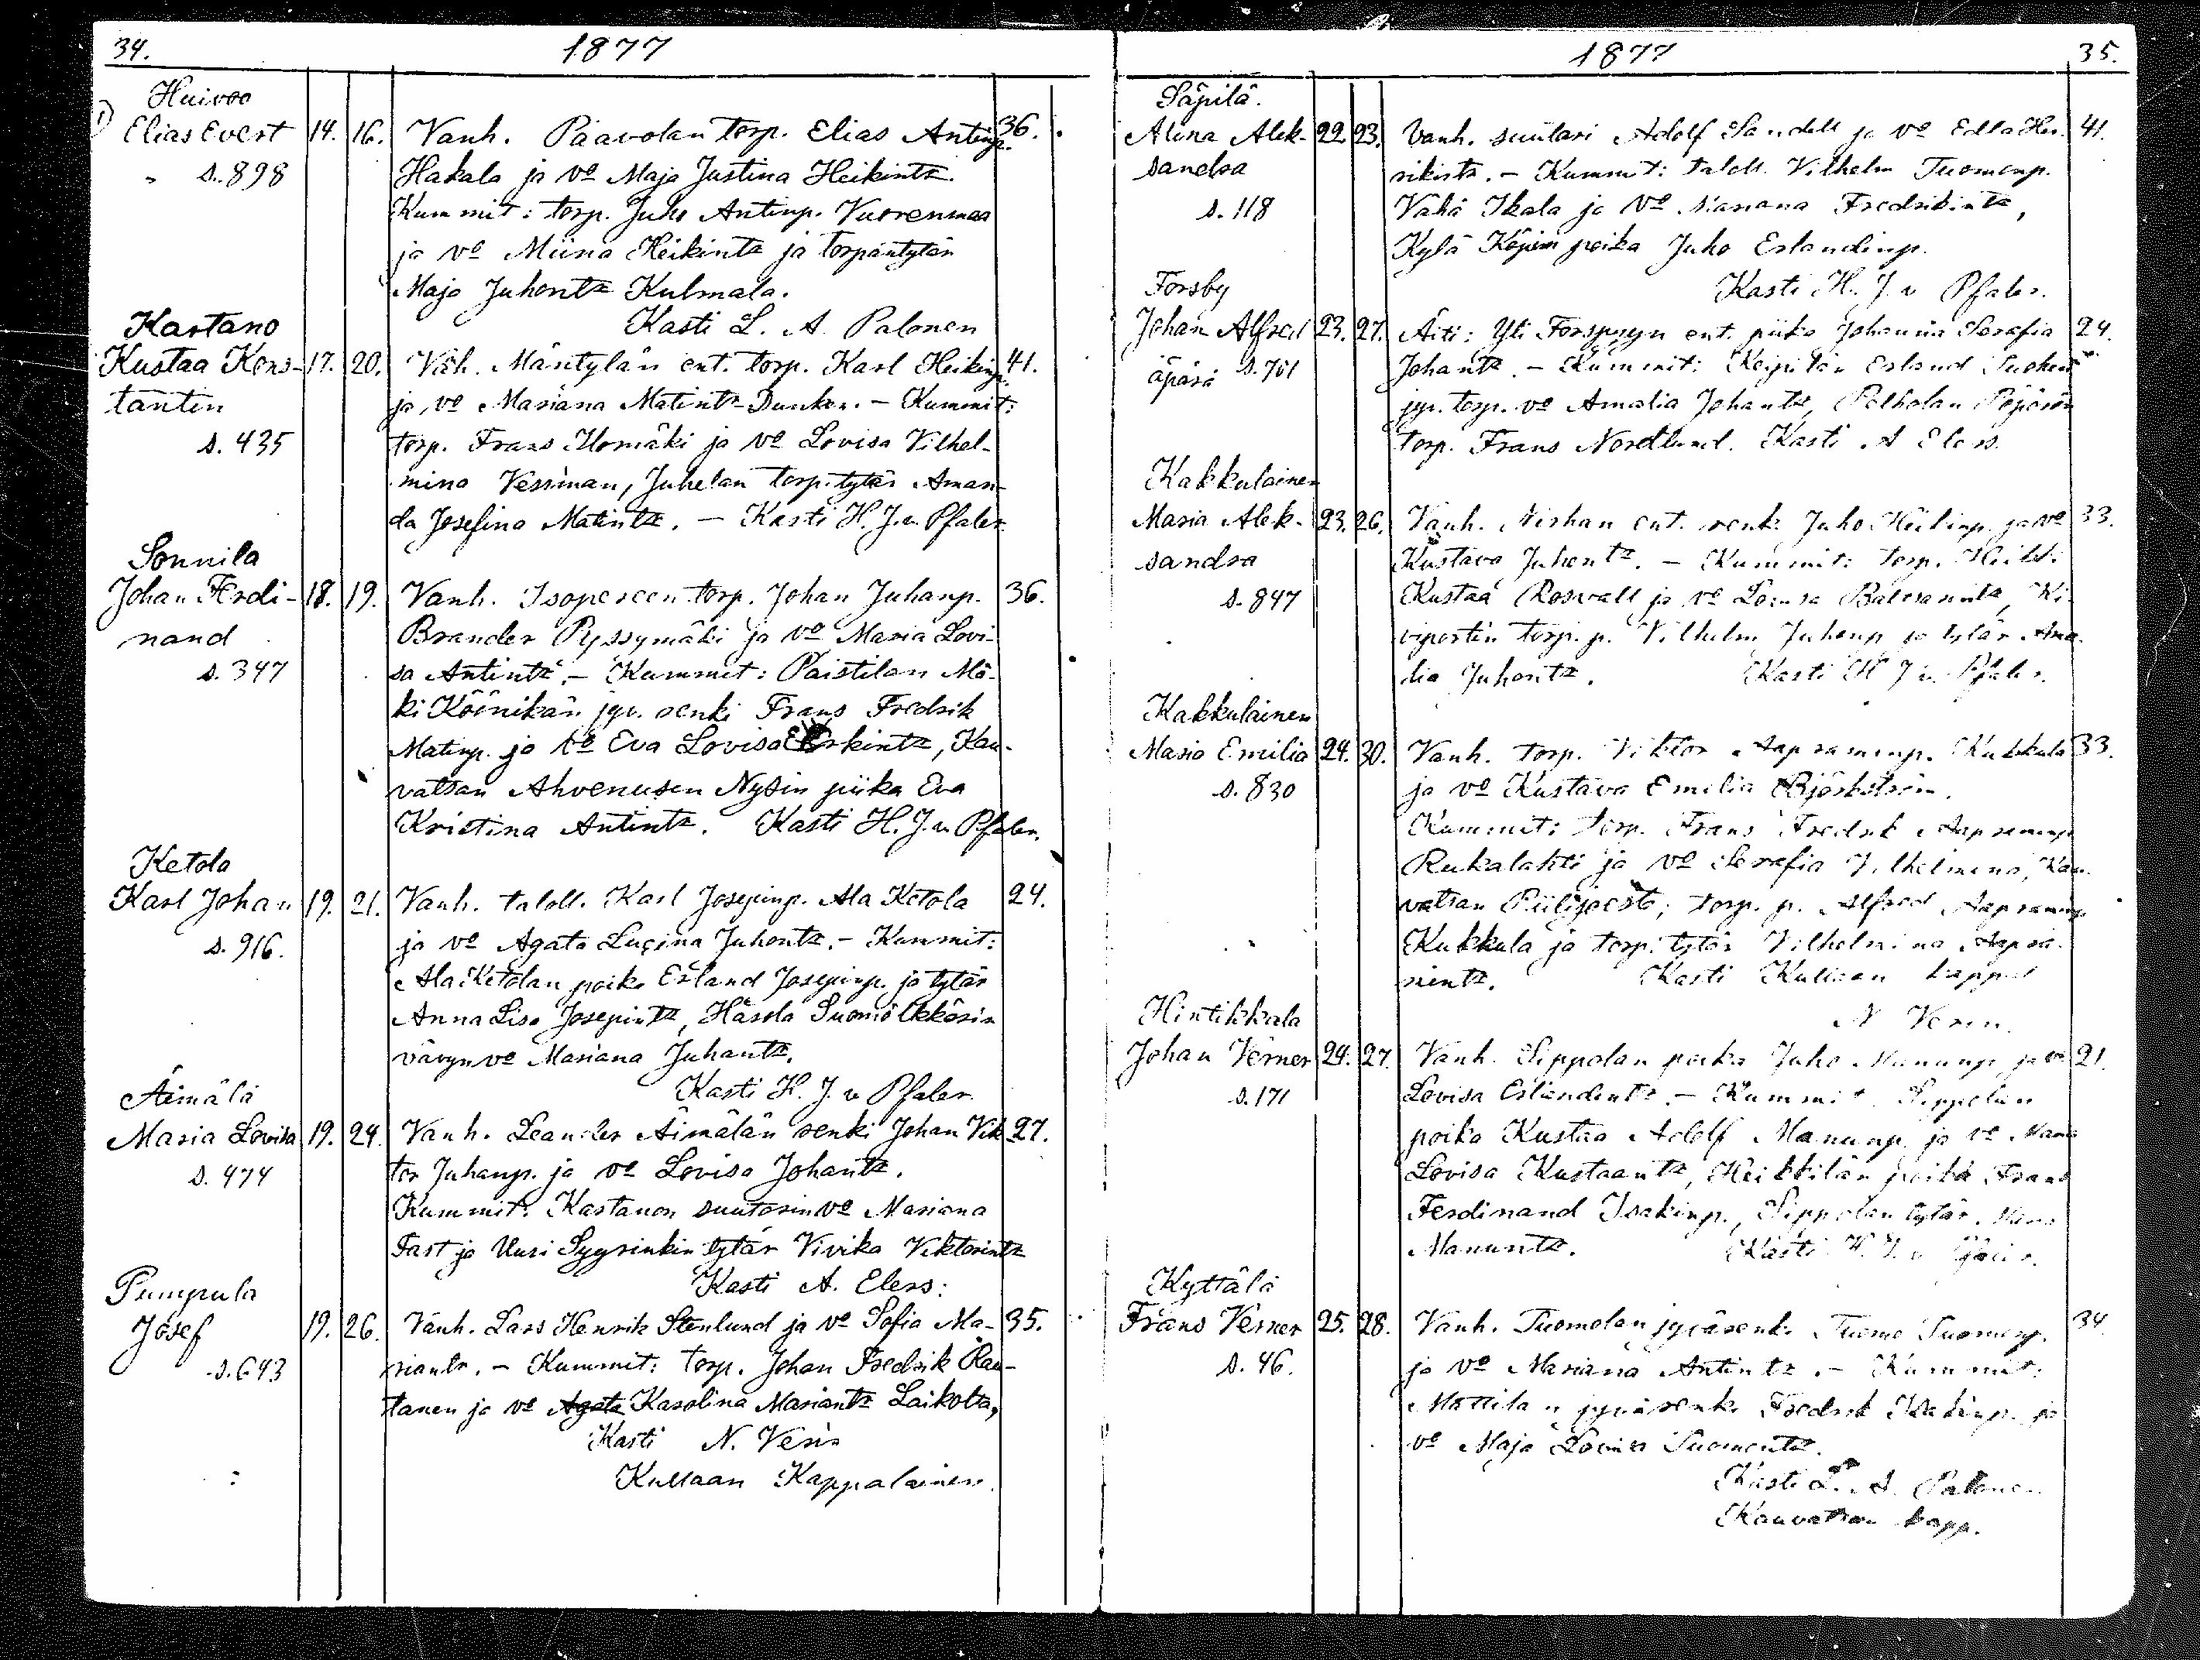 34.
1877
Huivoo
Elias Evert 14. 16. Vanh. Paavolan torp. Elias Antinp. 36.
s. 898 Hakala ja vo Maja Justina Heikintr.
Kummit: torp. Juho Antinp. Vuorenmaa
ja vo Miina Heikintr ja torpantytär
Maja Juhontr Kulmala.
Kasti L. A. Palonen
Kartano
Kustaa Kons- 17. 20. Vanh. Mäntylän ent. torp. Karl Heikinp. 41.
tantin ja vo Mariana Matintr Dunker. - Kummit:
s. 435 torp. Frans Ilomäki ja vo Lovisa Vilhel-
mina Vessman, Juhelan torp. tytär Aman-
da Josefina Matintr. - Kasti H. J. v. Pfaler.
Sonnila
Johan Ferdi- 18. 19. Vanh. Isopereen torp. Johan Juhanp. 36.
nand Brander Pyssymäki ja vo Maria Lovi-
s. 347 sa Antintr. - Kummit: Paistilan Mä-
ki Köönikän jyv. renki Frans Fredrik
Matinp. ja vo Eva Lovisa Erkintr, Kau-
vatsan Ahvenusen Nysin piika Eva
Kristina Antintr. Kasti H. J. v. Pfaler.
Ketola
Karl Johan 19. 21. Vanh. taloll. Karl Josepinp. Ala Ketola 24.
s. 916. ja vo Agata Lucina Juhontr. - Kummit:
Ala Ketolan poika Erland Josepinp. ja tytär
Anna Lisa Josepintr, Härola Suomo Ekkärin
vävyn vo Mariana Juhantr.
Kasti H. J. v Pfaler.
Äimälä
Maria Lovisa 19. 24. Vanh. Leander Äimälän renki Johan Vik 27.
s. 474 tor Juhanp. ja vo Lovisa Johantr.
Kummit: Kartanon suutarin vo Mariana
Fast ja Uusi Sygrinkin tytär Vivika Viktorintr
Kasti A. Elers:
Pumpula
Josef 19. 26. Vanh. Lars Henrik Stenlund ja vo Sofia Ma- 35.
s. 643 riantr. - Kummit: torp. Johan Fredrik Rau-
tanen ja vo Agata Karolina Mariantr Laikolta,
Kasti N. Verin
Kullaan Kappalainen.
1877
35.
Säpilä.
Alina Alek- 22. 23. Vanh. suutari Adolf Sandell ja vo Edla Hen- 41.
sandra rikintr. - Kummit: taloll. Vilhelm Tuomenp.
s. 118 Vähä Ikala ja vo Mariana Fredrikintr,
Kylä poika Juho Erlandinp.
Kasti H. J. v Pfaler.
Forsby
Johan Alfred 23. 27. Äiti: Yli Forspyyn ent. piika Johanna Serafia 24.
äpärä s. 701 Johantr. - Kummit: Keipilän Erland
jyv. torp. vo Amalia Johantr, Polholan
torp. Frans Nordlund. Kasti A Elers.
Kakkulainen
Maria Alek- 23. 26. Vanh. ent. renki Juho Heikinp. ja vo 33.
sandra Kustava Juhontr. - Kummit: torp.
s. 847 Kustaa Roswall ja vo Lovisa Ki-
viportin torp. p. Vilhelm Juhanp. ja tytär Ama-
lia Juhontr. Kasti H J v. Pfaler.
Kakkulainen
Maria Emilia 24. 30. Vanh. torp. Viktor Aapraminp. Kukkula 33.
s. 830 ja vo Kustava Emilia
Kummit: torp. Frans Fredrik Aapraminp
Rukalahti ja vo Serafia Vilhelmina, Kau-
vatsan torp. p. Alfred Aapraminp
Kukkula ja torp. tytär Vilhelmina Aapra-
mintr. Kasti Kullaan kappal
N Verin.
Hintikkala
Johan Verner 24. 27. Vanh. Sippolan poika Juho Manunp. ja vo 21.
s. 171 Lovisa Erlandintr. - Kummit. Sippolan
poika Kustaa Adolf Manunp. ja vo Maria
Lovisa Kustaantr, Heikkilän poika Frans
Ferdinand Isakinp., Sippolan tytär
Manuntr. Kasti H. J. v Pfaler.
Kyttälä
Frans Verner 25. 28. Vanh. Tuomolan jyvärenki Tuomo Tuomenp. 34.
s. 46. ja vo Mariana Antintr. - Kummit:
Mattilan jyvärenki Fredrik Isakinp. ja
vo Maja Lovisa Tuomentr.
Kasti L. A. Palonen
Kauvatsan kapp.